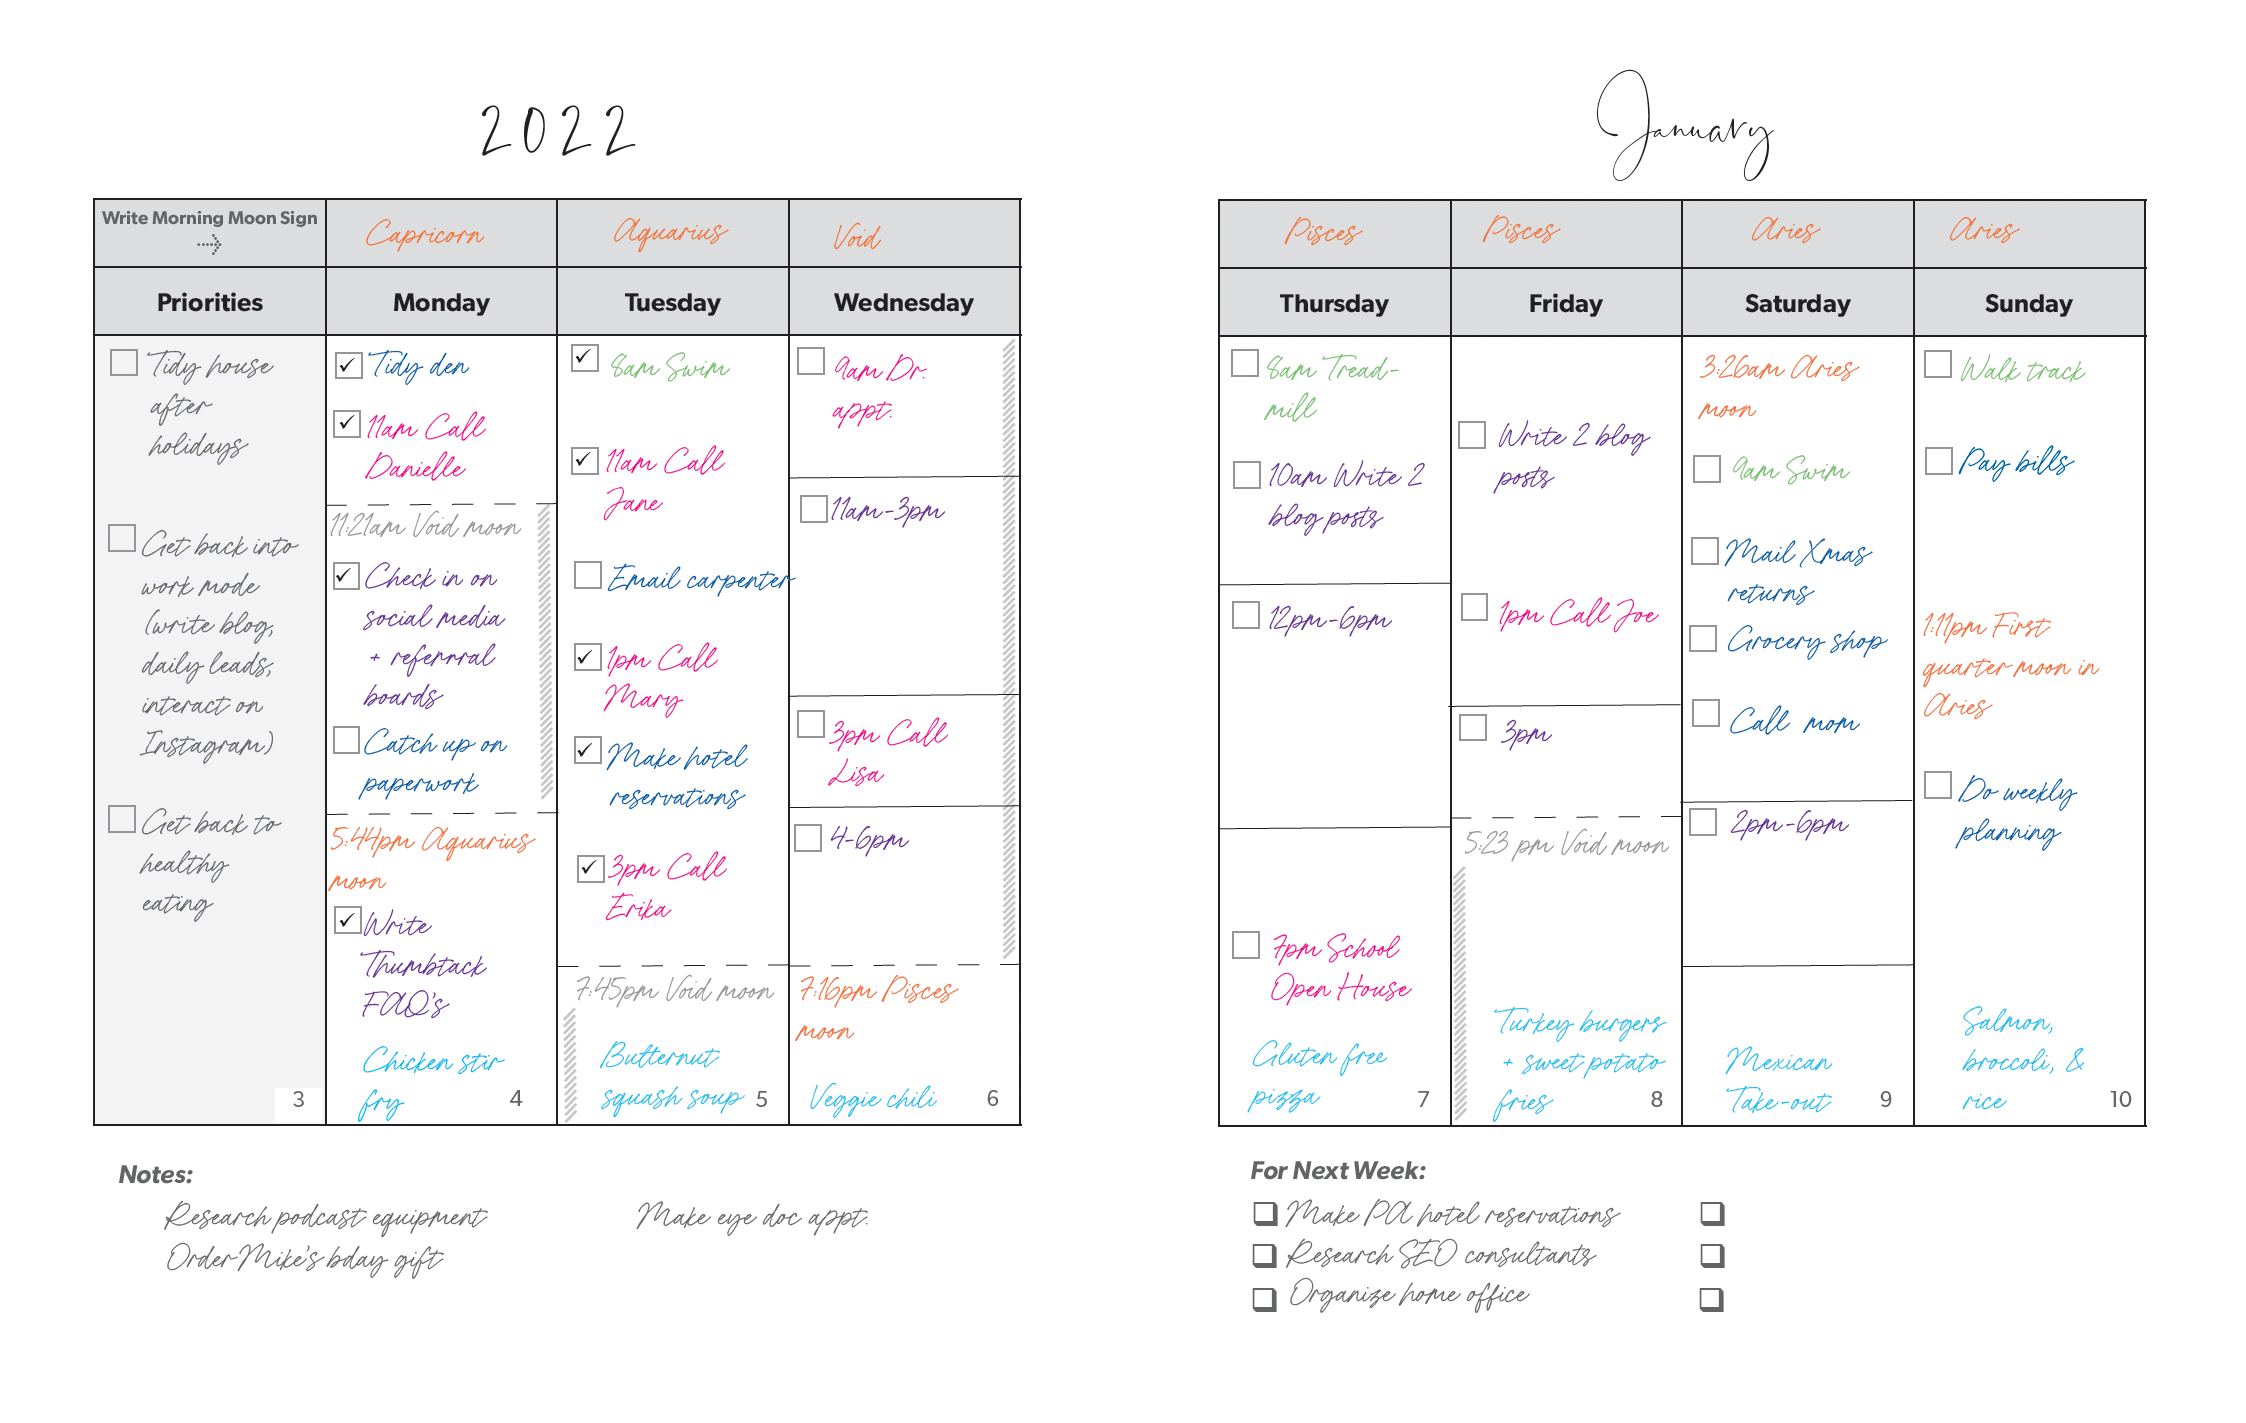 2022
January
Write Morning Moon Sign
Capricorn
Aquarius
Void
Pisces
Pisces
Aries
Aries
Priorities
Monday
Tuesday
Wednesday
Thursday
Friday
Saturday
Sunday
Tidy house
after
holidays
Get back into
work mode
(write blog,
daily leads,
interact on
Instagram)
Get back to
healthy
eating
3
Tidy den
11am Call
Danielle
11:21am Void moon
Check in on
social media
+ refernral
boards
Catch up on
paperwork
5:44pm Aquarius
moon
Write
Thumbtack
FAQ's
Chicken stir
fry
4
8am Swim
11am Call
Jane
Email carpenter
1pm Call
Mary
Make hotel
reservations
3pm Call
Erika
7:45pm Void moon
Butternut
squash soup
5
9am Dr.
appt.
11am-3pm
3pm Call
Lisa
4-6pm
7:16pm Pisces
moon
Veggie chili
6
8am Tread-
mill
10am Write 2
blog posts
12pm-6pm
7pm School
Open House
Gluten free
pizza
7
Write 2 blog
posts
1pm Call Joe
3pm
5:23 pm Void moon
Turkey burgers
+ sweet potato
fries
8
3:26am Aries
moon
9am Swim
Mail Xmas
returns
Grocery shop
Call mom
2pm-6pm
Mexican
Take-out
9
Walk track
Pay bills
1:11pm First
quarter moon in
Aries
Do weekly
planning
Salmon,
broccoli, &
rice
10
Notes:
Research podcast equipment
Order Mike's bday gift
Make eye doc appt.
For Next Week:
Make PA hotel reservations
Research SEO consultants
Organize home office